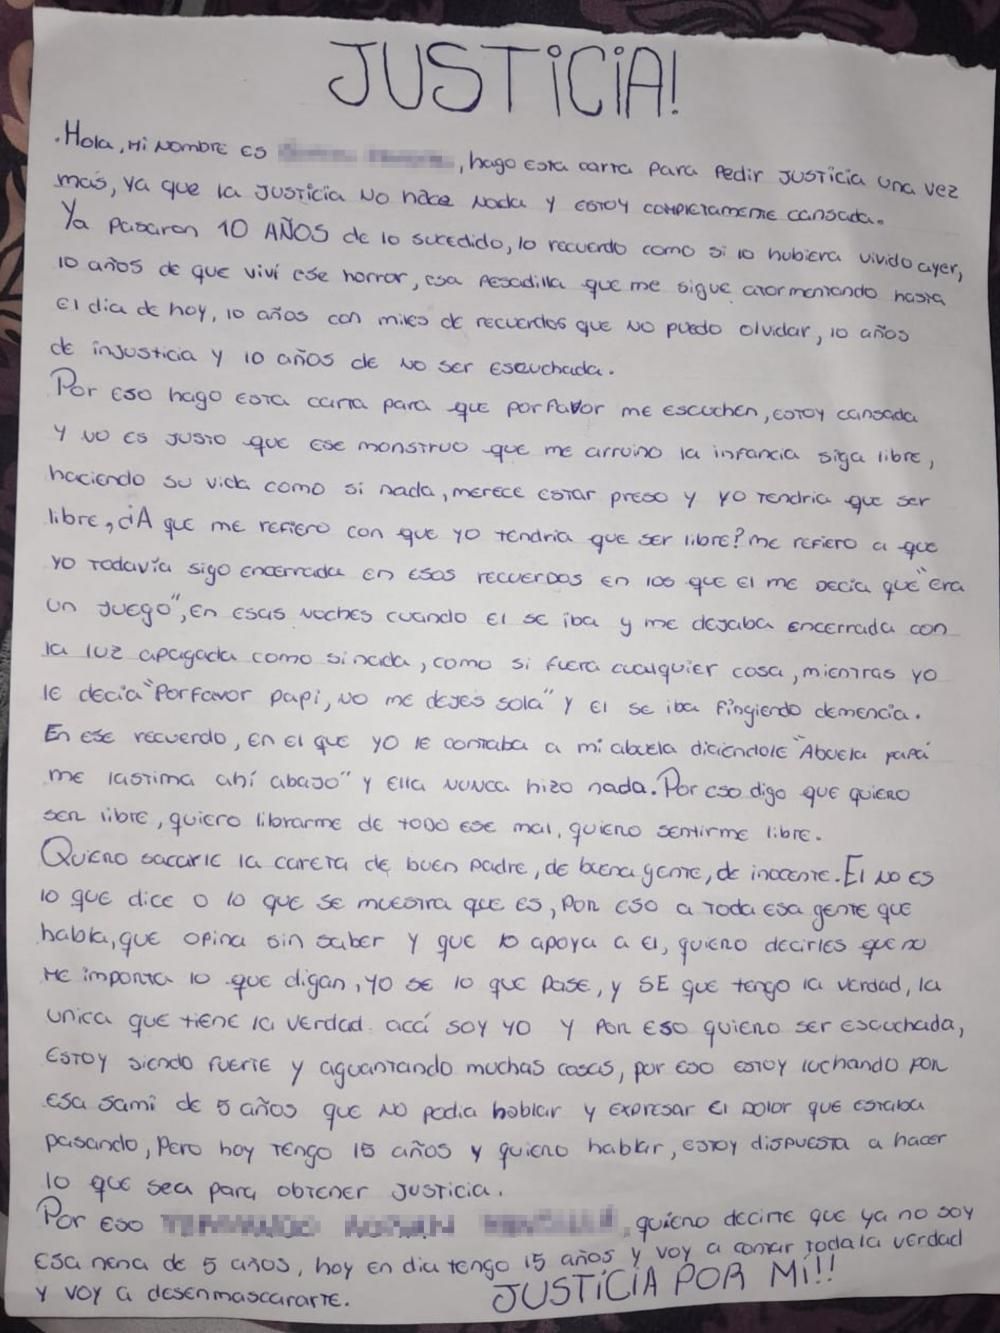 JUSTICIA!
.Hola, Mi Nombre es, hago esta carta para pedir justicia una vez
más, ya que la justicia no hace nada y estoy completamente cansada.
Ya pasaron 10 AÑOS de lo sucedido, lo recuerdo como si lo hubiera vivido ayer,
10 años de que viví ese horror, esa pesadilla que me sigue atormentando hasta
el dia de hoy, 10 años con miles de recuerdos que no puedo olvidar, 10 años
de injusticia y 10 años de no ser escuchada.
Por eso hago esta carta para que porfavor me escuchen, estoy cansada
y no es justo que ese monstruo que me arruino la infancia siga libre,
haciendo su vida como si nada, merece estar preso y yo tendria que ser
libre, ¿A que me refiero con que yo tendria que ser libre? me refiero a que
yo todavía sigo encerrada en esos recuerdos en los que el me decia que "era
un juego", en esas noches cuando el se iba y me dejaba encerrada con
la luz apagada como si nada, como si fuera cualquier cosa, mientras yo
le decia "Porfavor papi, no me dejes sola" y el se iba fingiendo demencia.
En ese recuerdo, en el que yo le contaba a mi abuela diciéndole "Abuela papá
me lastima ahí abajo" y ella nunca hizo nada. Por eso digo que quiero
ser libre, quiero librarme de todo ese mal, quiero sentirme libre.
Quiero sacarle la careta de buen padre, de buena gente, de inocente. El no es
lo que dice o lo que se muestra que es, por eso a toda esa gente que
habla, que opina sin saber y que lo apoya a el, quiero decirles que no
me importa lo que digan, yo se lo que pase, y SE que tengo la verdad, la
unica que tiene la verdad acá soy yo y por eso quiero ser escuchada,
estoy siendo fuerte y aguantando muchas cosas, por eso estoy luchando por
esa sami de 5 años que no podia hablar y expresar el dolor que estaba
pasando, pero hoy tengo 15 años y quiero hablar, estoy dispuesta a hacer
lo que sea para obtener justicia.
Por eso, quiero decirte que ya no soy
esa nena de 5 años, hoy en dia tengo 15 años y voy a contar toda la verdad
y voy a desenmascararte.
JUSTICIA POR MÍ!!